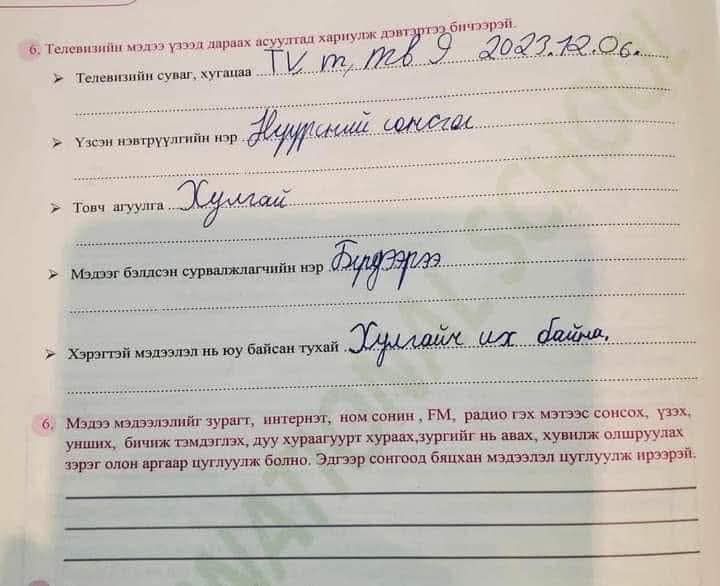 6. Телевизийн мэдээ үзээд дараах асуултад хариулж дэвтэртээ бичээрэй.
➢ Телевизийн суваг, хугацаа TV m, тв 9 2023.12.06.
➢ Үзсэн нэвтрүүлгийн нэр Нүүрсний сонсгол
➢ Товч агуулга Хулгай
➢ Мэдээг бэлдсэн сурвалжлагчийн нэр Бүгдээрээ
➢ Хэрэгтэй мэдээлэл нь юу байсан тухай Хулгайч их байна.
6. Мэдээ мэдээлэлийг зурагт, интернэт, ном сонин , FM, радио гэх мэтээс сонсох, үзэх,
унших, бичиж тэмдэглэх, дуу хураагуурт хураах,зургийг нь авах, хувилж олшруулах
зэрэг олон аргаар цуглуулж болно. Эдгээр сонгоод бяцхан мэдээлэл цуглуулж ирээрэй.
NATIONAL SCHOOL